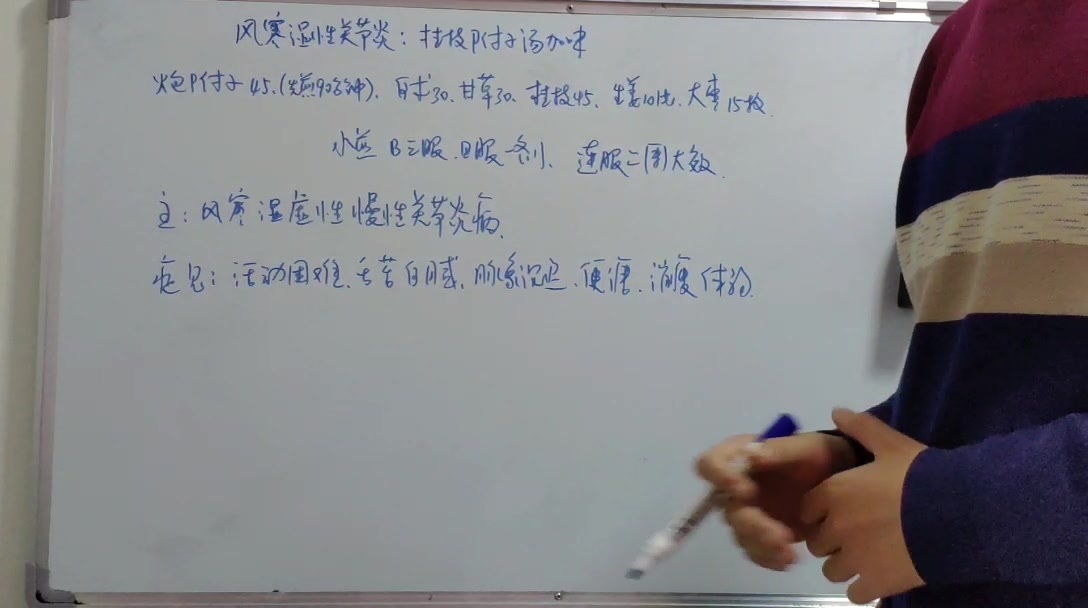 风寒湿性关节炎：桂枝附子汤加味
炮附子45.(先煎90分钟)、白术30、甘草30、桂枝45、生姜10片、大枣15枚.
水煎 日三服、日服一剂、连服二周大效.
主：风寒湿虚性慢性关节炎病.
症见：活动困难、舌苔白腻、脉象沉迟、便溏、消瘦体弱.